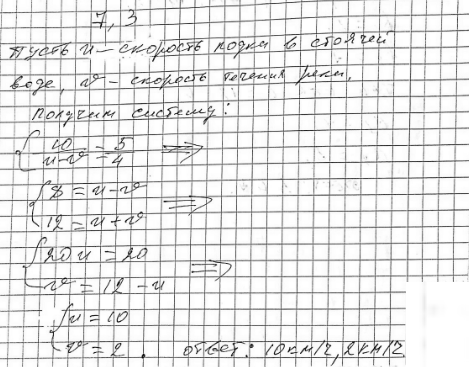 7,3
Пусть u – скорость лодки в стоячей
воде, v – скорость течения реки.
Получим систему:
{ 10/(u-v) = 5/4 ⇒
{ 8 = u-v
12 = u+v ⇒
{ 20u = 20
v = 12-u ⇒
{ u = 10
v = 2. ответ: 10км/ч, 2км/ч